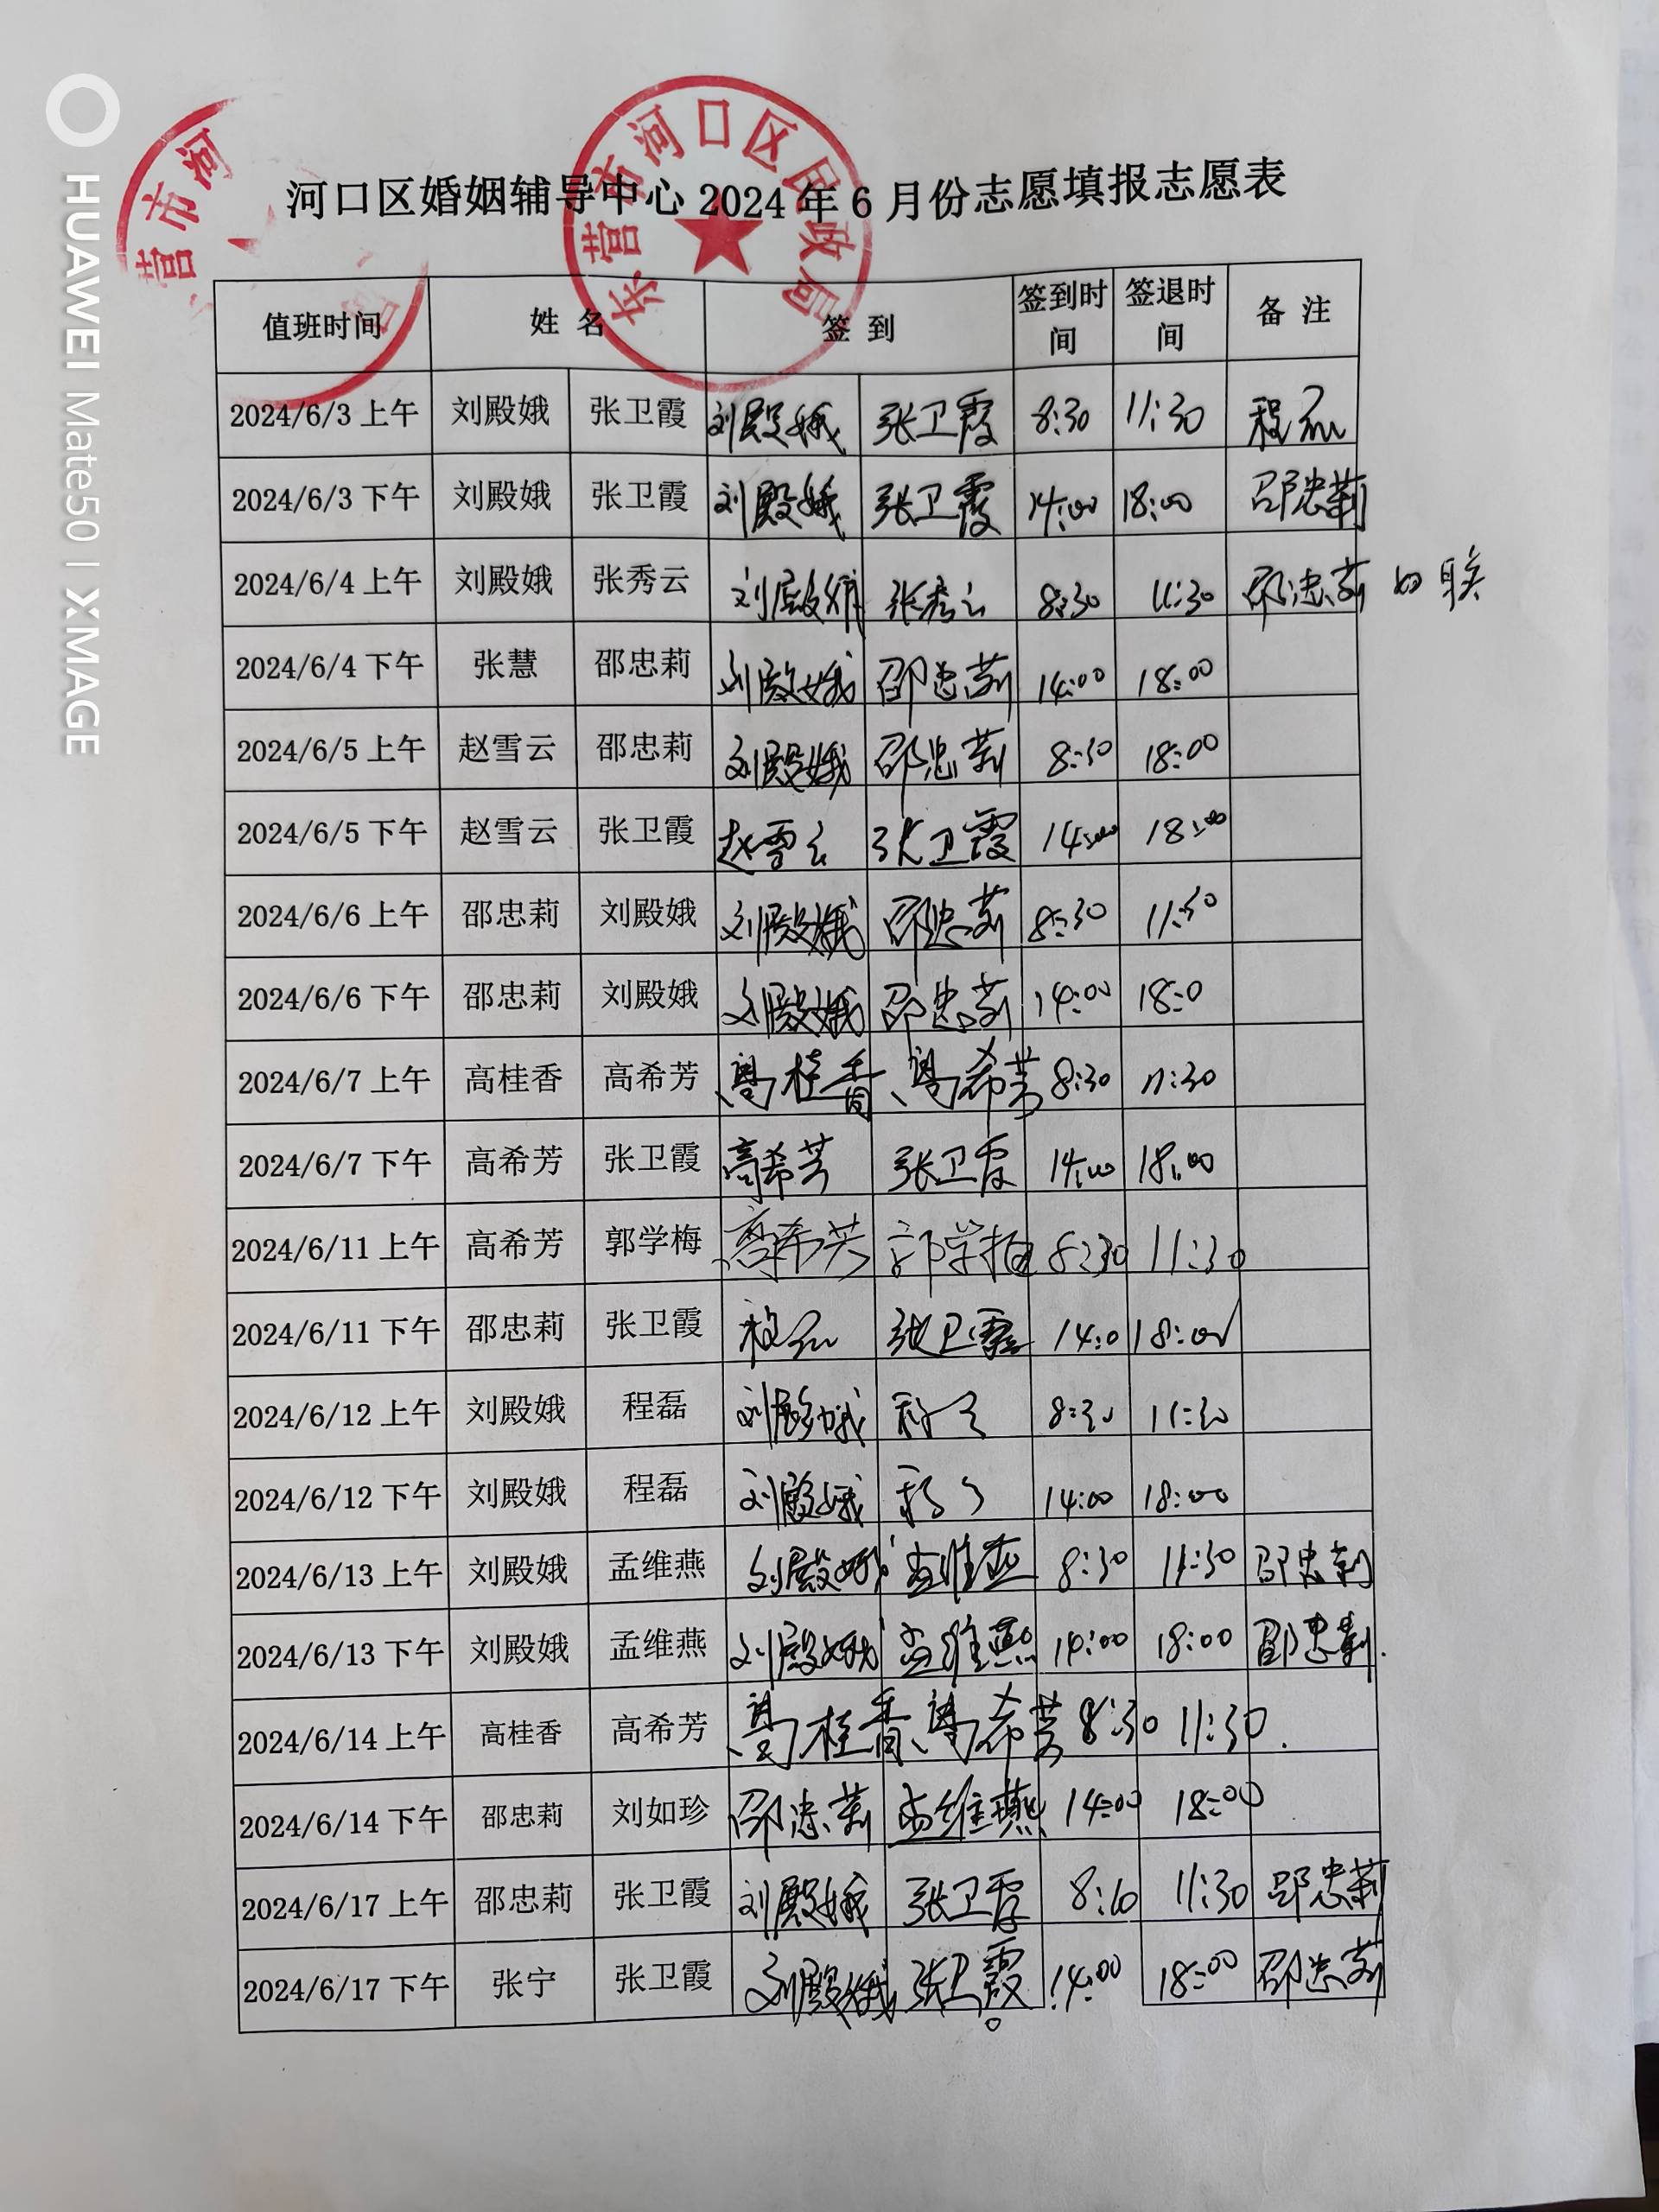 HUAWEI Mate50 | XMAGE
营市河
东营市河口区民政局
河口区婚姻辅导中心 2024 年 6 月份志愿填报志愿表
值班时间 姓 名 签 到 签到时间 签退时间 备 注
2024/6/3 上午 刘殿娥 张卫霞 刘殿娥 张卫霞 8:30 11:30 程磊
2024/6/3 下午 刘殿娥 张卫霞 刘殿娥 张卫霞 14:00 18:00 邵忠莉
2024/6/4 上午 刘殿娥 张秀云 刘殿娥 张秀云 8:30 11:30 邵忠莉
2024/6/4 下午 张慧 邵忠莉 刘殿娥 邵忠莉 14:00 18:00
2024/6/5 上午 赵雪云 邵忠莉 刘殿娥 邵忠莉 8:30 18:00
2024/6/5 下午 赵雪云 张卫霞 赵雪云 张卫霞 14:00 18:00
2024/6/6 上午 邵忠莉 刘殿娥 刘殿娥 邵忠莉 8:30 11:30
2024/6/6 下午 邵忠莉 刘殿娥 刘殿娥 邵忠莉 14:00 18:0
2024/6/7 上午 高桂香 高希芳 高桂香、高希芳 8:30 11:30
2024/6/7 下午 高希芳 张卫霞 高希芳 张卫霞 14:00 18:00
2024/6/11 上午 高希芳 郭学梅 高希芳 郭学梅 8:30 11:30
2024/6/11 下午 邵忠莉 张卫霞 程磊 张卫霞 14:0 18:00
2024/6/12 上午 刘殿娥 程磊 刘殿娥 程磊 8:30 11:30
2024/6/12 下午 刘殿娥 程磊 刘殿娥 程磊 14:00 18:00
2024/6/13 上午 刘殿娥 孟维燕 刘殿娥 孟维燕 8:30 11:30 邵忠莉
2024/6/13 下午 刘殿娥 孟维燕 刘殿娥 孟维燕 14:00 18:00 邵忠莉.
2024/6/14 上午 高桂香 高希芳 高桂香、高希芳 8:30 11:30.
2024/6/14 下午 邵忠莉 刘如珍 邵忠莉 孟维燕 14:00 18:00
2024/6/17 上午 邵忠莉 张卫霞 刘殿娥 张卫霞 11:30 邵忠莉
2024/6/17 下午 张宁 张卫霞 刘殿娥 张卫霞 14:00 18:00 邵忠莉